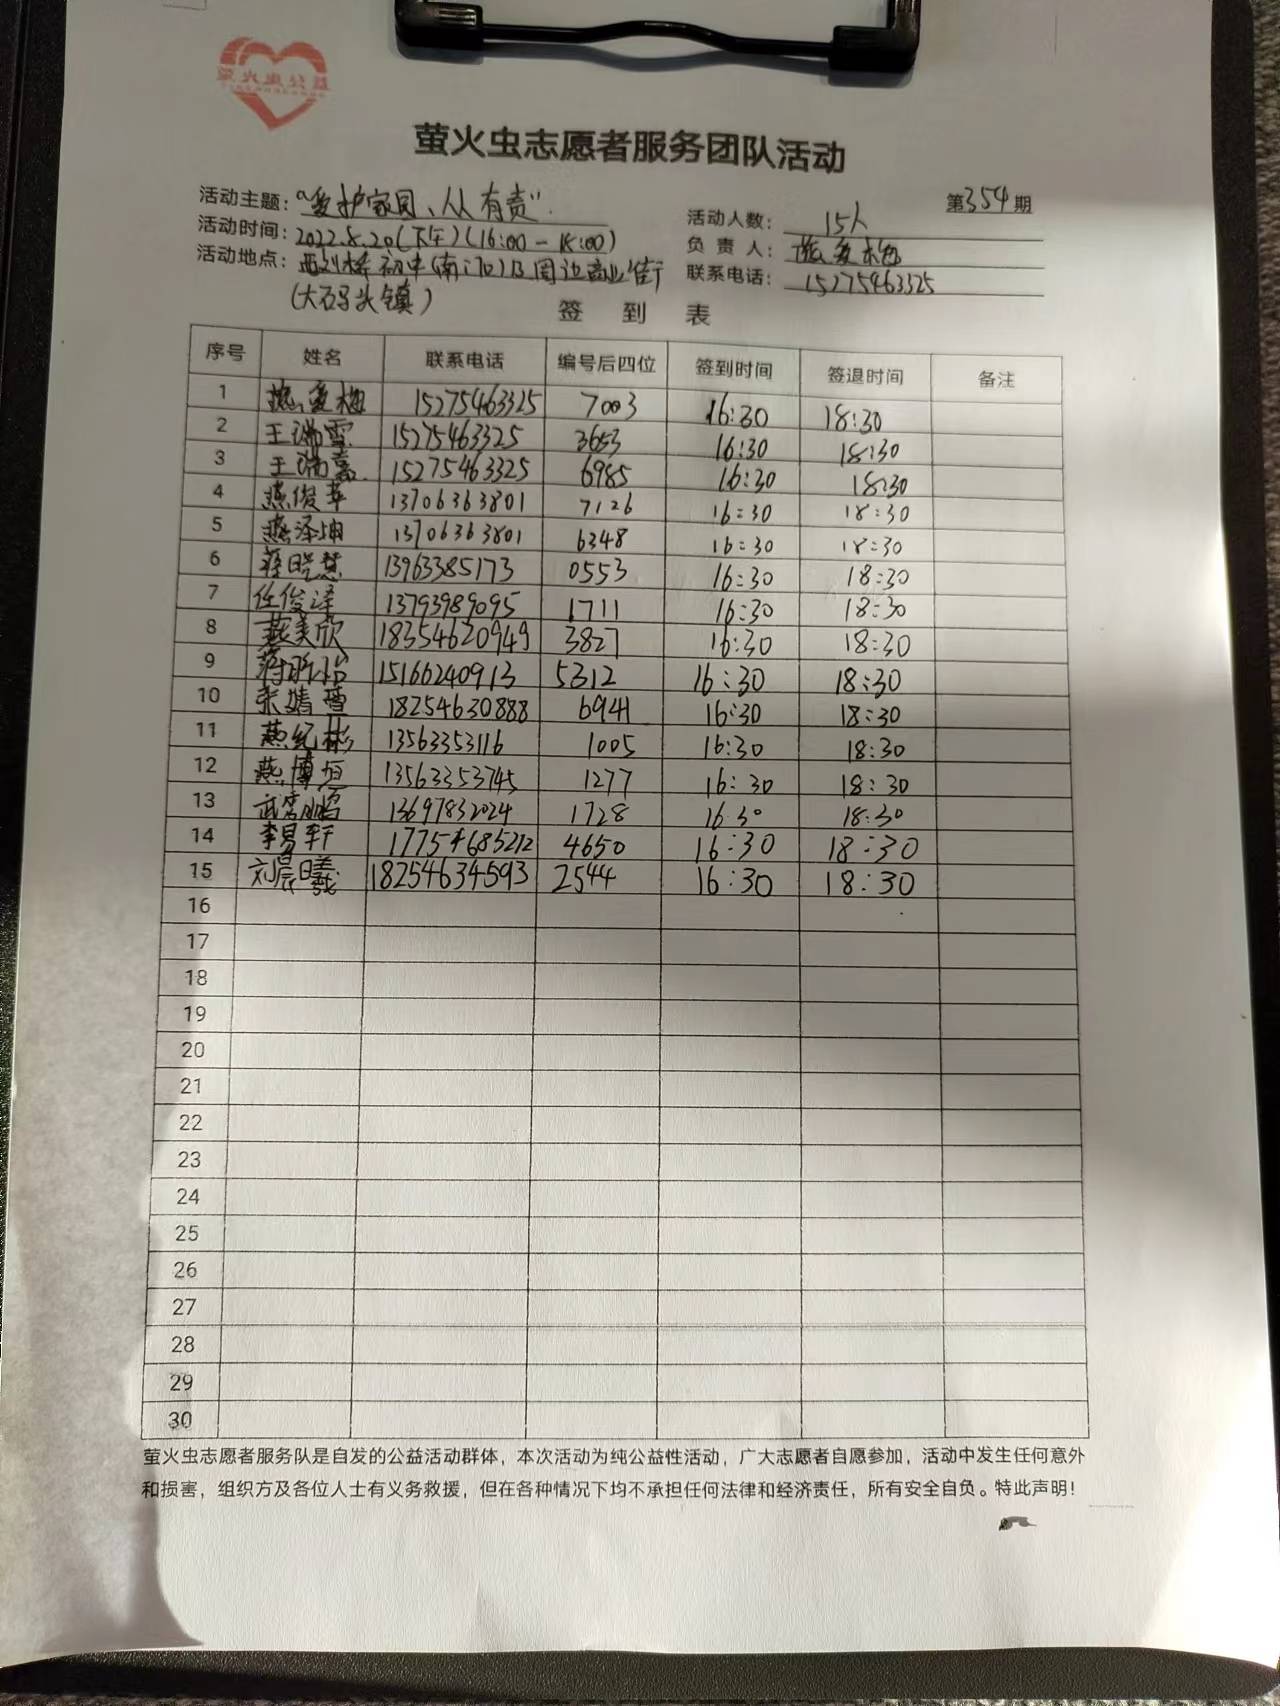 萤火虫公益
萤火虫志愿者服务团队活动
第354期
活动主题：“爱护家园、人人有责”
活动人数：15人
活动时间：2022.8.20(下午)(16:00-18:00)
负责人：爱梅
活动地点：西刘桥初中(南门口)及周边商业街
联系电话：15275463325
(大码头镇)
签到表
序号 姓名 联系电话 编号后四位 签到时间 签退时间 备注
1 爱梅 15275463325 7003 16:30 18:30
2 王瑞雪 15275463325 3653 16:30 18:30
3 王瑞嘉 15275463325 6985 16:30 18:30
4 燕俊苹 13706363801 7126 16:30 18:30
5 燕泽坤 13706363801 6348 16:30 18:30
6 蒋晓慧 13963385173 0553 16:30 18:30
7 任俊泽 13793989095 1711 16:30 18:30
8 燕美欣 18354620949 3827 16:30 18:30
9 蒋 15166240913 5312 16:30 18:30
10 张婧雪 18254630888 6941 16:30 18:30
11 燕纪彬 13563353116 1005 16:30 18:30
12 燕博恒 13563353745 1277 16:30 18:30
13 武 鹏 13697832024 1728 16:30 18:30
14 李易轩 17754685212 4650 16:30 18:30
15 刘晨曦 18254634593 2544 16:30 18:30
16
17
18
19
20
21
22
23
24
25
26
27
28
29
30
萤火虫志愿者服务队是自发的公益活动群体，本次活动为纯公益性活动，广大志愿者自愿参加，活动中发生任何意外
和损害，组织方及各位人士有义务救援，但在各种情况下均不承担任何法律和经济责任，所有安全自负。特此声明！